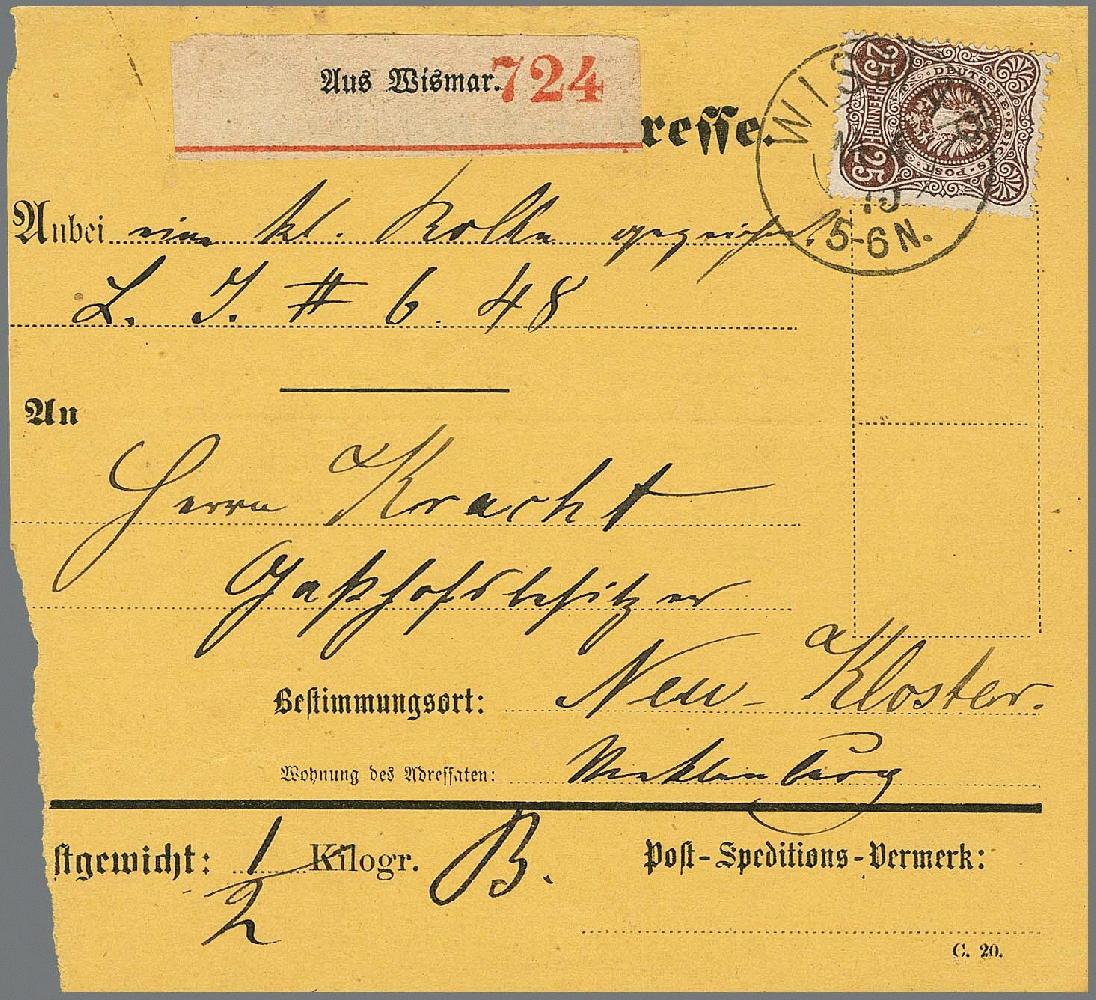 Aus Wismar. 724
resse.
25 PFENNIG 25
DEUTSCHE REICHS-POST
WISMAR
5-6 N.
Anbei eine kl. Rolle gezeichn.
L. J. # 6 48
An
Herrn Kracht
Gasthofsbesitzer
Bestimmungsort: Neu-Kloster.
Wohnung des Adressaten: Mecklenburg
stgewicht: 1/2 Kilogr. B. Post-Speditions-Vermerk:
C. 20.